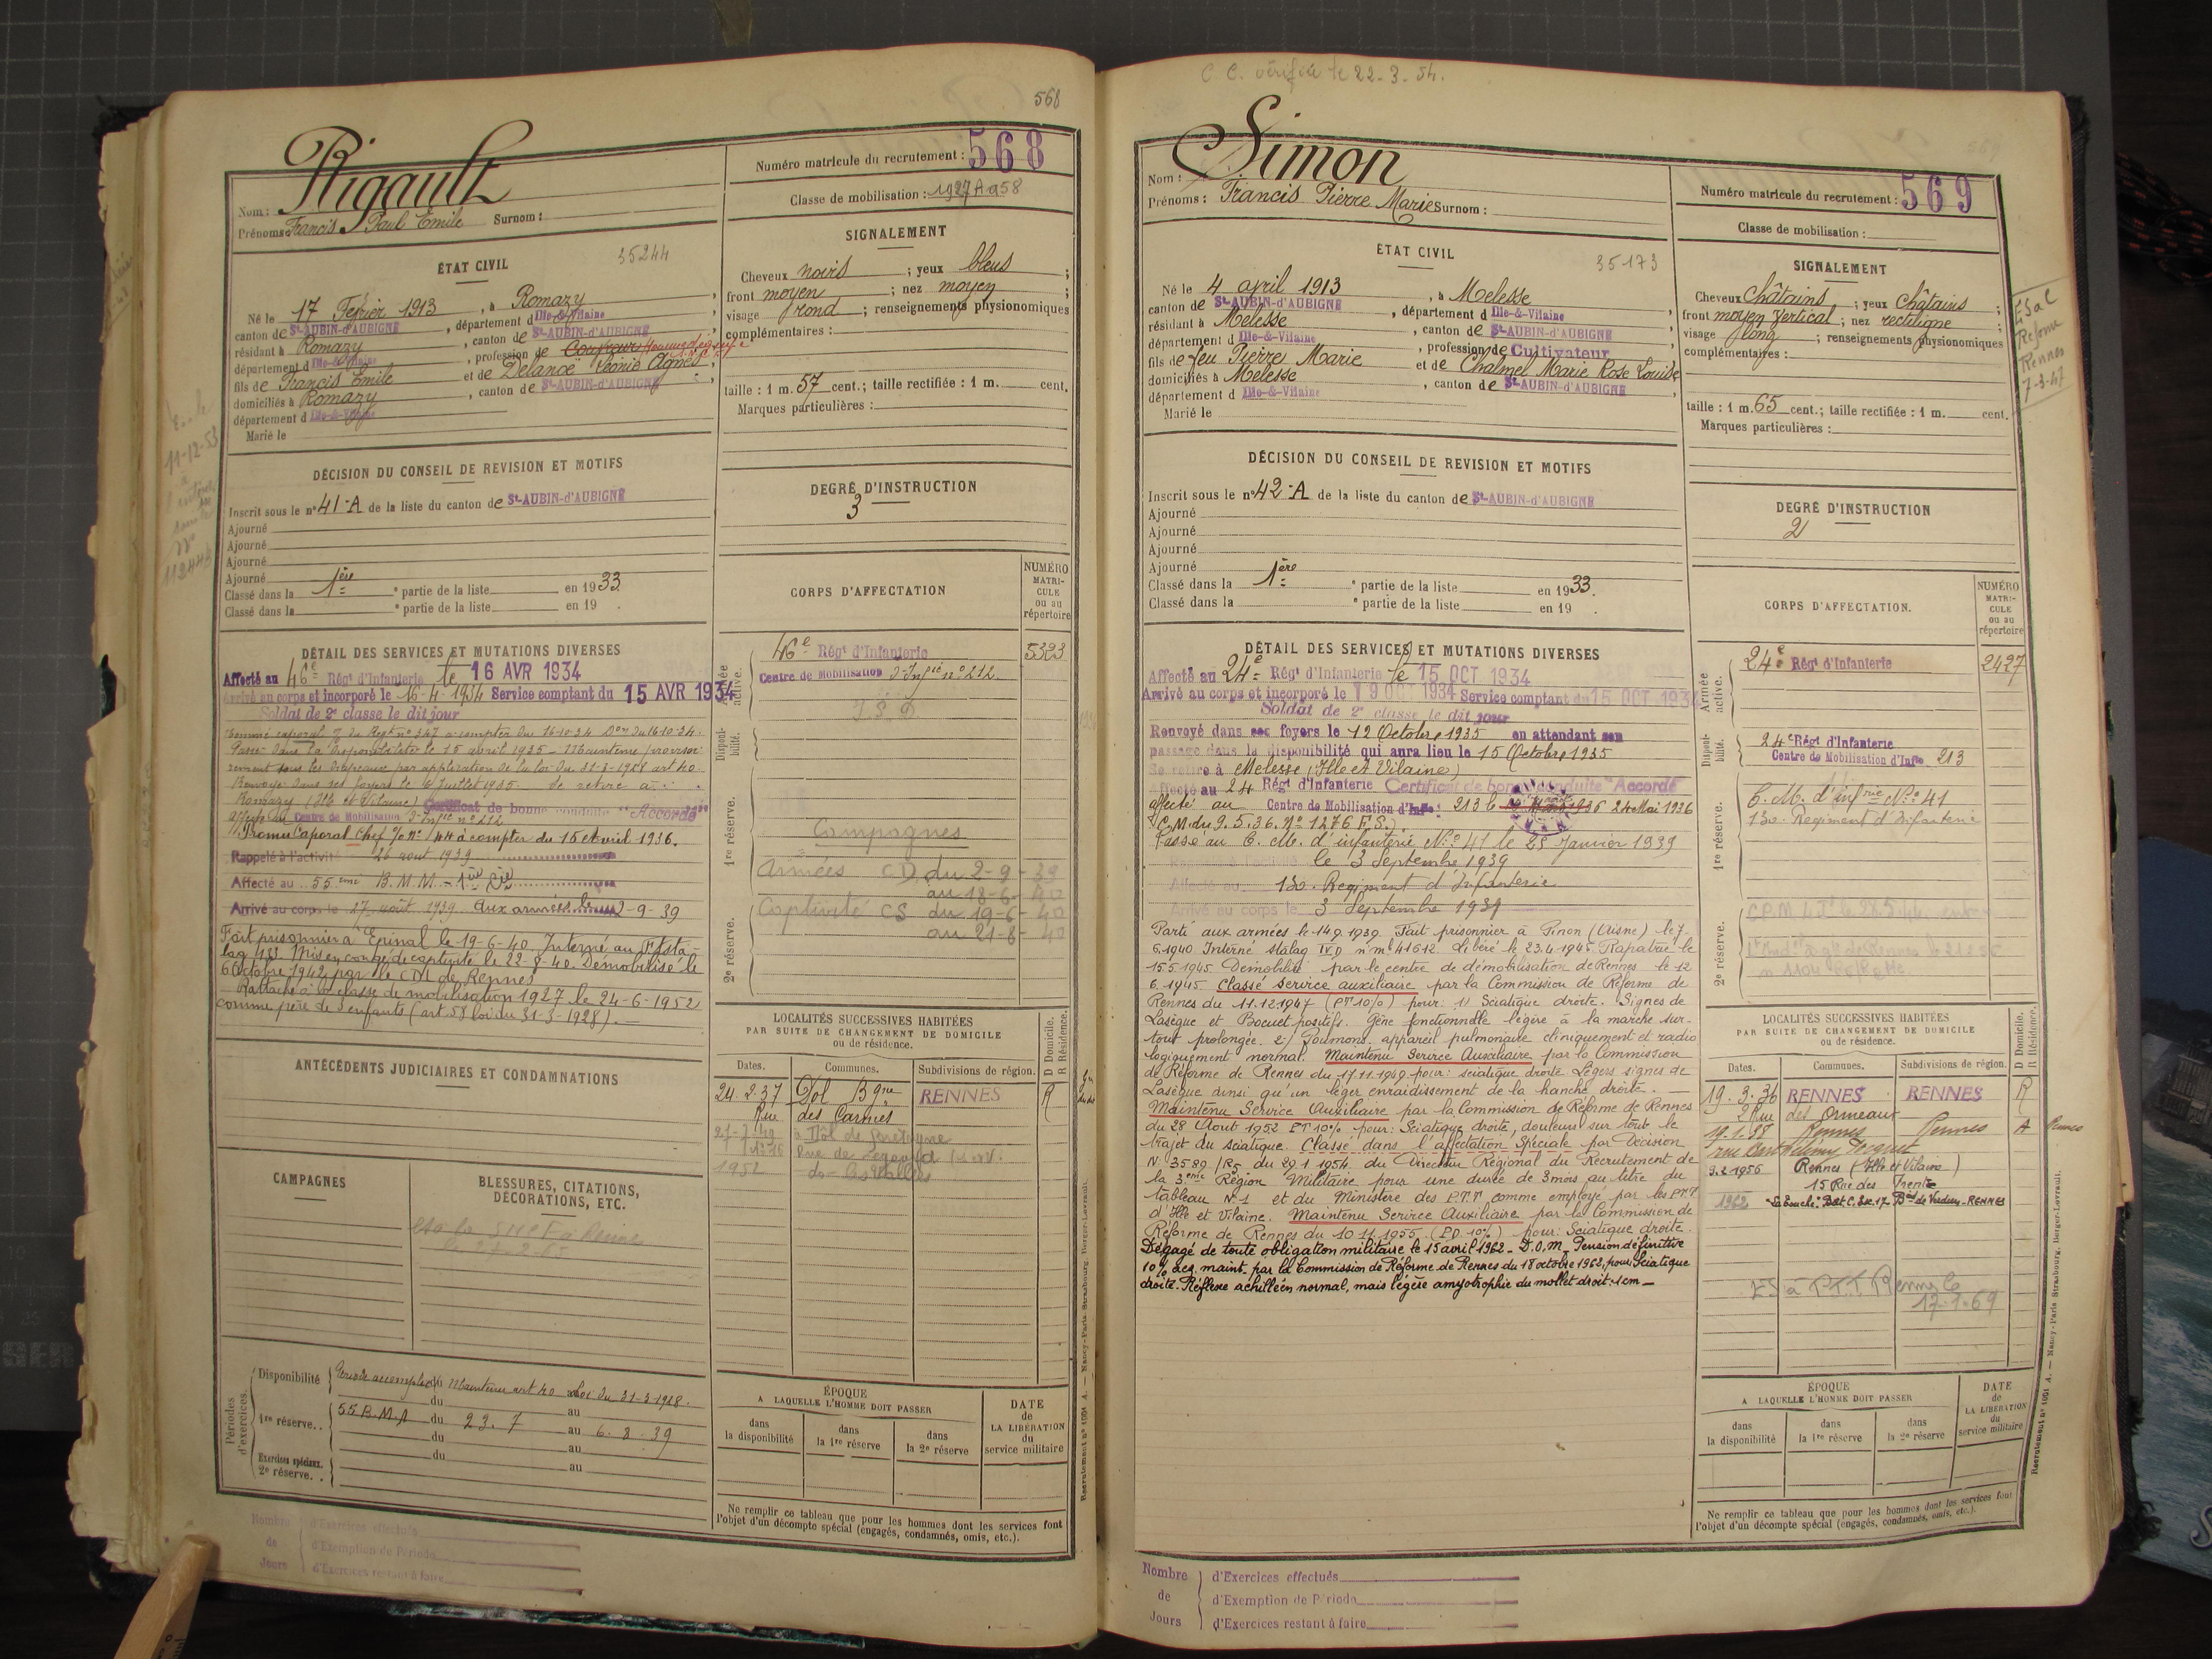 568
Rigault
Nom :
Prénoms : Francis Paul Emile Surnom :
Numéro matricule du recrutement : 568
Classe de mobilisation : 1927 A 958
ÉTAT CIVIL
35244
Né le 17 Février 1913, à Romazy,
canton de St-AUBIN-d'AUBIGNÉ, département d Ille-&-Vilaine
résidant à Romazy, canton de St-AUBIN-d'AUBIGNÉ
département d Ille-&-Vilaine, profession de
fils de Francis Emile et de Delancé Léonie Agnès
domiciliés à Romazy, canton de St-AUBIN-d'AUBIGNÉ
département d Ille-&-Vilaine
Marié le
SIGNALEMENT
Cheveux noirs ; yeux bleus ;
front moyen ; nez moyen ;
visage rond ; renseignements physionomiques
complémentaires :
taille : 1 m. 57 cent.; taille rectifiée : 1 m. cent.
Marques particulières :
DÉCISION DU CONSEIL DE REVISION ET MOTIFS
Inscrit sous le n° 41-A de la liste du canton de St-AUBIN-d'AUBIGNÉ
Ajourné
Ajourné
Ajourné
Ajourné
Classé dans la 1ère partie de la liste en 1933.
Classé dans la partie de la liste en 19 .
DEGRÉ D'INSTRUCTION
3
CORPS D'AFFECTATION
NUMÉRO MATRICULE ou au répertoire
Armée active.
46e Régt d'Infanterie 5323
Centre de Mobilisation d'Infie n° 212.
Disponibilité.
1re réserve.
Campagnes
Armées CD du 2-9-39
au 18-6-40
Captivité CS du 19-6-40
au 21-8-40
2e réserve.
DÉTAIL DES SERVICES ET MUTATIONS DIVERSES
Affecté au 46e Régt d'Infanterie le 16 AVR 1934
Arrivé au corps et incorporé le 16-4-1934 Service comptant du 15 AVR 1934
Soldat de 2e classe le dit jour
Nommé caporal à compter du 16.10.34.
Passé dans la disponibilité le 15 avril 1935 - Maintenu provisoi-
rement sous les drapeaux par application de la loi du 31-3-1928 art 40.
Renvoyé dans ses foyers le 6 Juillet 1935. Se retire à
Romazy (Ille et Vilaine) Certificat de bonne conduite "Accordé"
affecté au Centre de Mobilisation d'Infie n° 212
Promu Caporal Chef à compter du 15 avril 1936.
Rappelé à l'activité 26 août 1939
Affecté au 55ème B.M.M. - 1ère Cie
Arrivé au corps le 27 août 1939. Aux armées le 2-9-39
Fait prisonnier à Epinal le 19-6-40. Interné au Frsta-
lag 133. Mis en congé de captivité le 22-8-40. Démobilisé le
6 Octobre 1942 par le CDI de Rennes
Rattaché à la classe de mobilisation 1927 le 24-6-1952
comme père de 3 enfants (art 58 loi du 31-3-1928). —
ANTÉCÉDENTS JUDICIAIRES ET CONDAMNATIONS
LOCALITÉS SUCCESSIVES HABITÉES
PAR SUITE DE CHANGEMENT DE DOMICILE
ou de résidence.
D Domicile.
R Résidence.
Dates. Communes. Subdivisions de région.
24.2.37 Dol Bgne RENNES R
Rue des Carmes
27-7-49 à Dol de Bretagne
1952
CAMPAGNES
BLESSURES, CITATIONS,
DÉCORATIONS, ETC.
Périodes d'exercices.
Disponibilité Maintenu art 40 Loi du 31-3-1928.
1re réserve.. 55 B.M.A du 23.7 au 6.8.39
du au
Exercices spéciaux.
2e réserve. . du au
ÉPOQUE
A LAQUELLE L'HOMME DOIT PASSER
dans la disponibilité
dans la 1re réserve
dans la 2e réserve
DATE de LA LIBÉRATION du service militaire
Ne remplir ce tableau que pour les hommes dont les services font
l'objet d'un décompte spécial (engagés, condamnés, omis, etc.).
Nombre de Jours
d'Exercices effectués
d'Exemption de Période
d'Exercices restant à faire
Recrutement n° 1051 A. — Nancy-Paris-Strasbourg, Berger-Levrault.
C.C. vérifiée le 22-3-54.
569
Simon
Nom :
Prénoms : Francis Pierre Marie Surnom :
Numéro matricule du recrutement : 569
Classe de mobilisation :
ÉTAT CIVIL
35-173
Né le 4 avril 1913, à Melesse
canton de St-AUBIN-d'AUBIGNÉ, département d Ille-&-Vilaine
résidant à Melesse, canton de St-AUBIN-d'AUBIGNÉ
département d Ille-&-Vilaine, profession de Cultivateur
fils de feu Pierre Marie et de Chalmel Marie Rose Louise
domiciliés à Melesse, canton de St-AUBIN-d'AUBIGNÉ
département d Ille-&-Vilaine
Marié le
SIGNALEMENT
Cheveux châtains ; yeux châtains ;
front moyen vertical ; nez rectiligne ;
visage long ; renseignements physionomiques
complémentaires :
taille : 1 m. 65 cent.; taille rectifiée : 1 m. cent.
Marques particulières :
Réforme
Rennes
7-3-47
DÉCISION DU CONSEIL DE REVISION ET MOTIFS
Inscrit sous le n° 42-A de la liste du canton de St-AUBIN-d'AUBIGNÉ
Ajourné
Ajourné
Ajourné
Ajourné
Classé dans la 1ère partie de la liste en 1933.
Classé dans la partie de la liste en 19 .
DEGRÉ D'INSTRUCTION
2
CORPS D'AFFECTATION.
NUMÉRO MATRICULE ou au répertoire
Armée active.
24e Régt d'Infanterie 2427
Disponibilité.
24e Régt d'Infanterie
Centre de Mobilisation d'Infie 213
1re réserve.
C.M. d'infrie N° 41
130. Régiment d'Infanterie
2e réserve.
DÉTAIL DES SERVICES ET MUTATIONS DIVERSES
Affecté au 24e Régt d'Infanterie le 15 OCT 1934
Arrivé au corps et incorporé le 19 OCT 1934 Service comptant du 15 OCT 1934
Soldat de 2e classe le dit jour
Renvoyé dans ses foyers le 12 Octobre 1935 en attendant son
passage dans la disponibilité qui aura lieu le 15 Octobre 1935
Se retire à Melesse (Ille et Vilaine)
Affecté au 24 Régt d'Infanterie Certificat de bonne conduite "Accordé"
affecté au Centre de Mobilisation d'Infie 213 le 24 Mai 1936
(C.M du 9.5.36. N° 1276 E.S.)
Passé au C.M. d'infanterie N° 41 le 25 Janvier 1939
le 3 Septembre 1939
Affecté au 130. Régiment d'Infanterie
Arrivé au corps le 3 Septembre 1939
Parti aux armées le 14.9.1939. Fait prisonnier à Pinon (Aisne) le 7.
6.1940. Interné stalag IV.D n° mle 41612. Libéré le 23.4.1945. Rapatrié le
15.5.1945 Démobilisé par le centre de démobilisation de Rennes le 12
6.1945. Classé service auxiliaire par la Commission de Réforme de
Rennes du 11.12.1947 (PT 10%) pour : 1) Sciatique droite. Signes de
Lasègue et Bonnet positifs. Gêne fonctionnelle légère à la marche sur-
tout prolongée. 2) Poumons. appareil pulmonaire cliniquement et radio
logiquement normal. Maintenu Service Auxiliaire par la Commission
de Réforme de Rennes du 17.11.1949 pour : sciatique droite Légers signes de
Lasègue ainsi qu'un léger enraidissement de la hanche droite. -
Maintenu Service Auxiliaire par la Commission de Réforme de Rennes
du 28 Aout 1952 PT 10% pour : Sciatique droite, douleurs sur tout le
trajet du sciatique. Classé dans l'affectation Spéciale par Décision
N° 3589 /R5 du 29.1.1954 du Directeur Régional du Recrutement de
la 3ème Région Militaire pour une durée de 3 mois au titre du
tableau N° 1 et du Ministère des P.T.T comme employé par les P.T.T
d'Ille et Vilaine. Maintenu Service Auxiliaire par la Commission de
Réforme de Rennes du 10.11.1955 (P.D. 10%) pour : Sciatique droite.
Dégagé de toute obligation militaire le 15 avril 1962 - D.O.M - Pension définitive
10% acq. maint. par la Commission de Réforme de Rennes du 18 octobre 1962, pour Sciatique
droite. Réflexe achilléen normal, mais légère amyotrophie du mollet droit -1cm —
LOCALITÉS SUCCESSIVES HABITÉES
PAR SUITE DE CHANGEMENT DE DOMICILE
ou de résidence.
D Domicile.
R Résidence.
Dates. Communes. Subdivisions de région.
19.3.36 RENNES RENNES R
9 Rue des Ormeaux
19.1.38 Rennes Rennes
3.2.1956 Rennes (Ille et Vilaine)
15 Rue des Trente
1962 Bat C. Bd de Verdun - RENNES
ES à PTT Rennes
17-1-69
ÉPOQUE
A LAQUELLE L'HOMME DOIT PASSER
dans la disponibilité
dans la 1re réserve
dans la 2e réserve
DATE de LA LIBÉRATION du service militaire
Ne remplir ce tableau que pour les hommes dont les services font
l'objet d'un décompte spécial (engagés, condamnés, omis, etc.).
Nombre de Jours
d'Exercices effectués
d'Exemption de Période
d'Exercices restant à faire
Recrutement n° 1051 A. — Nancy-Paris-Strasbourg, Berger-Levrault.